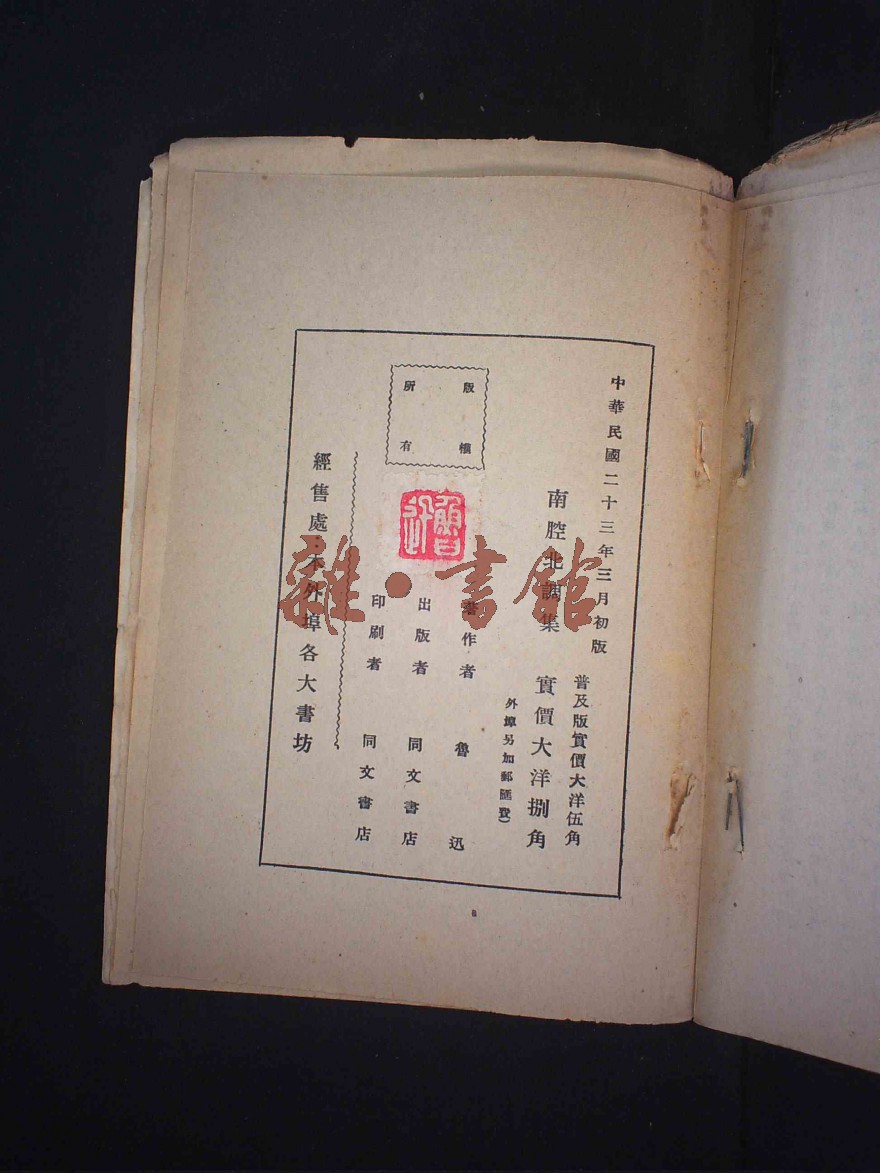 中華民國二十三年三月初版
南腔北調集
普及版實價大洋伍角
實價大洋捌角
外埠另加郵匯費)
版權
所有
魯迅
著作者 魯迅
出版者 同文書店
印刷者 同文書店
經售處：本外埠各大書坊
雜·書館